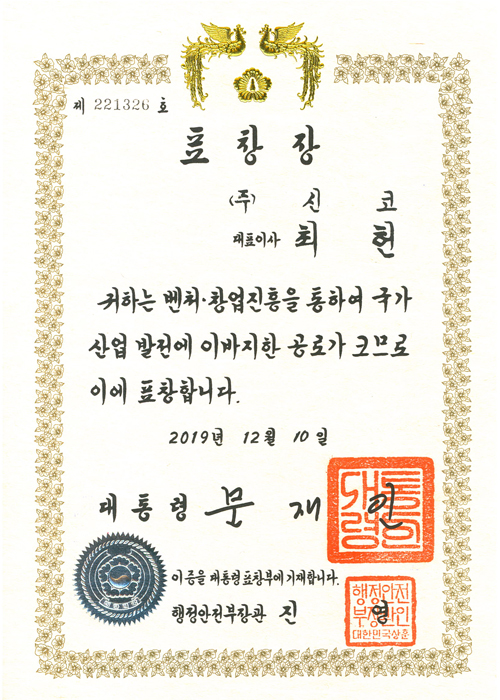 제 221326 호
표창장
(주) 신코
대표이사 최헌
귀하는 벤처·창업진흥을 통하여 국가
산업 발전에 이바지한 공로가 크므로
이에 표창합니다.
2019년 12월 10일
대통령 문재인
대통령의인
이 증을 대통령표창부에 기재합니다.
행정안전부장관 진영
행정안전
부장관인
대한민국상훈